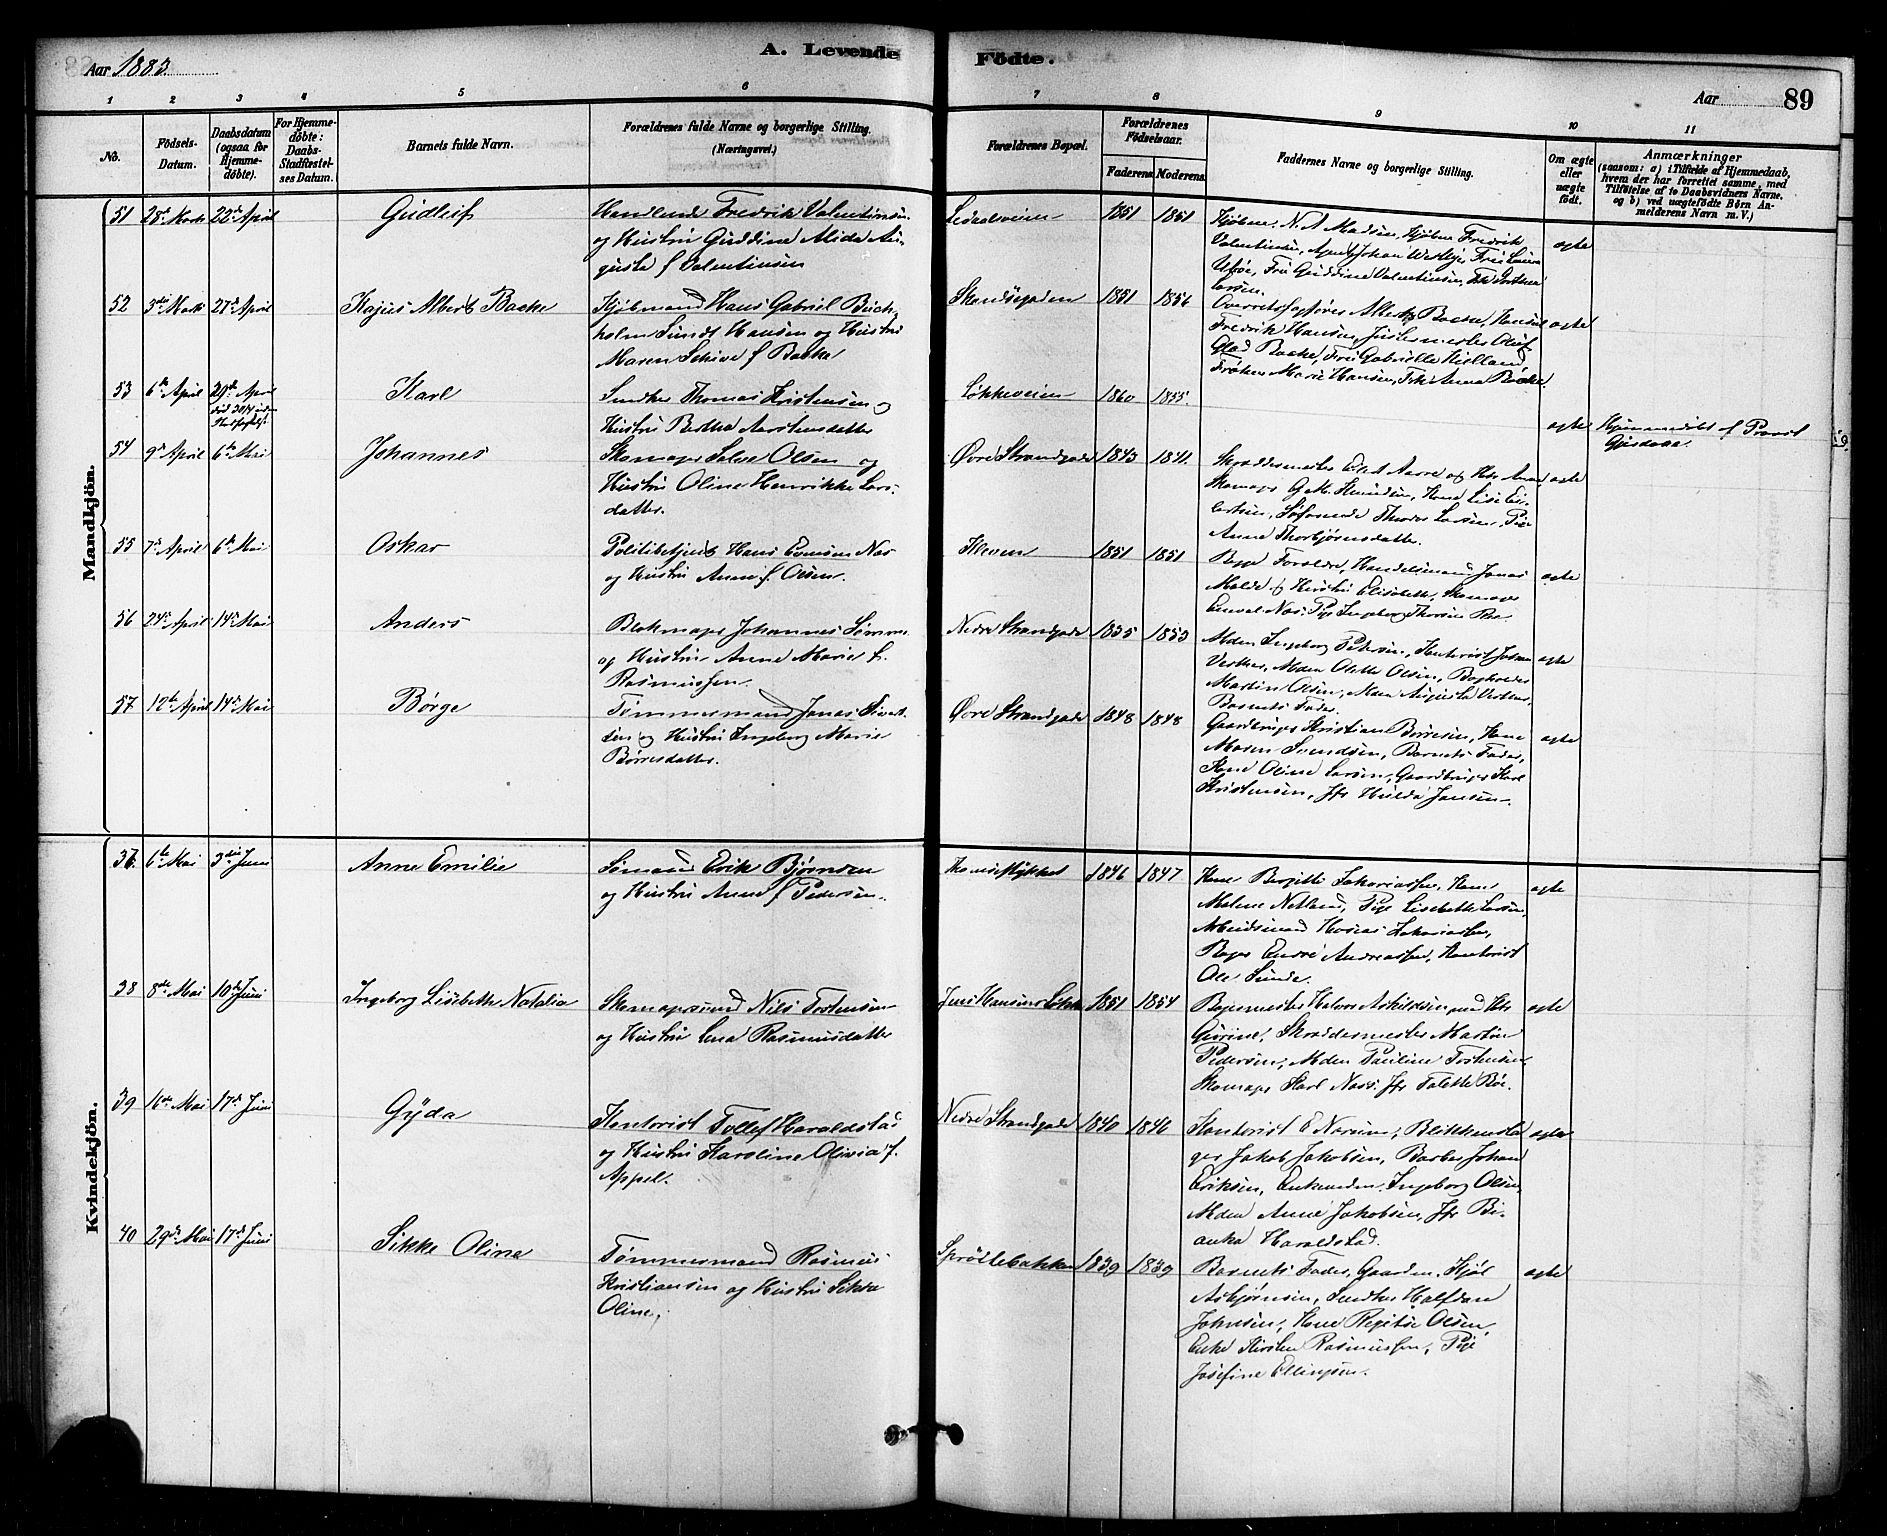 Aar 1883.
A. Levende Födte.
Aar 89
1 2 3 4 5 6 7 8 9 10 11
No.
Födsels-Datum.
Daabsdatum (ogsaa for Hjemme-döbte).
For Hjemme-döbte: Daabs-Stadfæstel-ses Datum.
Barnets fulde Navn.
Forældrenes fulde Navne og borgerlige Stilling.
(Næringsvei.)
Forældrenes Bopæl.
Forældrenes Födselsaar.
Faderens Moderens
Faddernes Navne og borgerlige Stilling.
Om ægte eller uægte födt.
Anmærkninger
(saasom: a) i Tilfælde af Hjemmedaab,
hvem der har forrettet samme, med
Tilföielse af to Daabsvidners Navne,
og b) ved uægtefödte Börn An-
melderens Navn m. V.)
Mandkjön.
51 22de April
Gudleif
Handlende Fredrik Valentinsen
og Hustru Guddine Alida Au-
gusta f Valentinsen
Ledaalsveien 1851 1851
Kjøbm. N. A Madsen, Kjøbm Fredrik
Valentinsen, Agent Johan
Fru Guddine Valentinsen,
Larsen.
ægte
52 3die Marts 27de April
Kajus Albert Backe
Kjøbmand Hans Gabriel Buch-
holm Sundt Hansen og Hustru
Maren Schive f Backe
Skandsegaden 1851 1856
Overretssagfører Albert Backe,
Fredrik Hansen, Olaf
Glad Backe, Fru Gabrielle Kielland
Frøken Marie Hansen, Frk Anna Backe.
ægte
53 6te April 29de April
Karl
Snedker Thomas Kristensen og
Hustru Bertha Aarstensdatter
Løkkeveien 1860 1855.
ægte
Hjemmedøbt af Provst
54 9de April 6te Mai
Johannes
Skomager Salve Olsen og
Hustru Oline Henrikke Lars-
datter.
Øvre Strandgade 1843 1841.
Skræddermester
Skomager G. M.
Søfarende Thodor Larsen, Pige
Anne Thorbjørnsdatter.
ægte
55 7de April 6te Mai
Oskar
Politibetjent Hans
og Hustru Anne f. Olsen.
Kleven 1851 1851
Begge Forældre, Handelsmand Jonas
Malde & Hustru Elisabeth, Skomager
Pige Ingeborg
ægte
56 24de April 14de Mai
Anders
Blokmager Johannes
og Hustru Anne Marie f.
Rasmussen.
Nedre Strandgade 1835 1853
Mdm Ingeborg Pedersen, Kontorist
Mdm Olette Olsen, Bogholder
Martin Olsen, Mdm Augusta
Barnets Fader.
ægte
57 12te April 14de Mai
Børge
Tømmermand Jonas Sivert-
sen og Hustru Ingeborg Marie
Børresdatter.
Øvre Strandgade 1848 1848
Gaardbruger Kristian Børresen, Kone
Maren Svendsen, Barnets Fader,
Kone Oline Larsen, Gaardbruger Karl
Kristensen, Jfr Hulda Jansen.
ægte
Kvindekjön.
37. 6te Mai 3die Juni
Anne Emilie
Sømand Erik Bjørnsen
og Hustru Anne f Pedersen.
1846 1847
Kone Birgitte Sakariassen, Kone
Malene Netland, Pige Lisebeth Larsen,
Arbeidsmand Sakariassen,
Bager Endre Andreassen, Kontorist
Ole Sunde.
ægte
38 8de Mai 10de Juni
Ingeborg Lisebeth Natalia
Skomagersvend Nils Torstensen
og Hustru Lena Rasmusdatter
Jens Hansens Løkke 1851 1854
Bagermester Halvor Askildsen med Hstr
Gurine, Skræddermester Martin
Pedersen, Mdm Pauline Torstensen
Skomager Karl Næss. Jfr Talette Bøe.
ægte
39 16de Mai 17de Juni
Gyda
Kontorist Tollef Haraldstad
og Hustru Karoline Olivia f.
Appel.
Nedre Strandgade 1840 1846
Kontorist E Narum, Blikkensla
ger Jakob Jakobsen, Barber Johan
Eriksen, Enkemdm. Ingeborg Olsen,
Mdm Anne Jakobsen, Jfr Bi-
anka Haraldstad.
ægte
40 29de Mai 17de Juni
Sikke Oline
Tømmermand Rasmus
Kristiansen og Hustru Sikke
Oline,
Sprøitebakken 1839 1839
Barnets Fader, Gaardm. Kjøl
Asbjørnsen, Snedker Halfdan
Johnsen, Kone Regitse Olsen,
Enke Kirsten Rasmussen, Pige
Josefine Ellingsen.
ægte